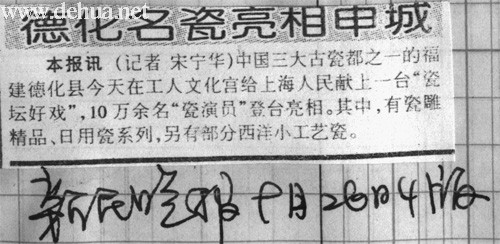 www.dehua.net
德化名瓷亮相申城
本报讯 (记者 宋宁华)中国三大古瓷都之一的福
建德化县今天在工人文化宫给上海人民献上一台“瓷
坛好戏”,10万余名“瓷演员”登台亮相。其中,有瓷雕
精品、日用瓷系列,另有部分西洋小工艺瓷。
新民晚报 十月26日4版